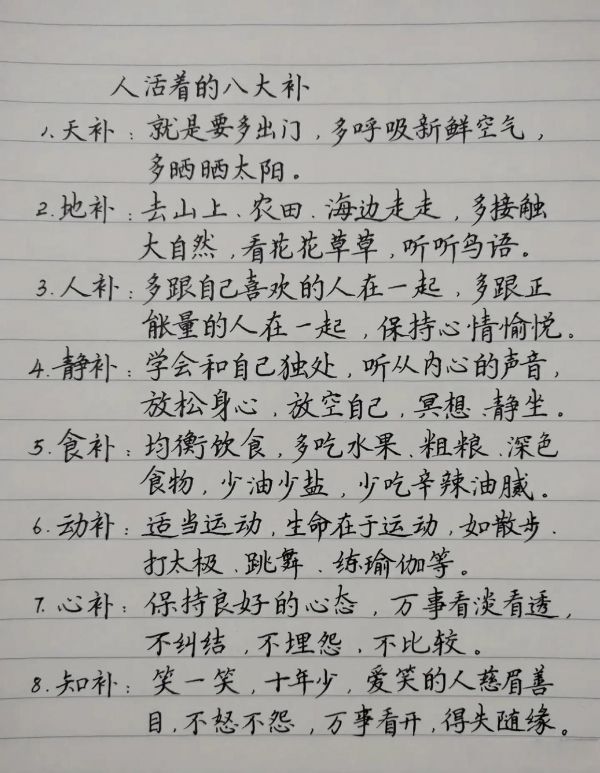 人活着的八大补
1.天补：就是要多出门，多呼吸新鲜空气，
多晒晒太阳。
2.地补：去山上、农田、海边走走，多接触
大自然，看花花草草，听听鸟语。
3.人补：多跟自己喜欢的人在一起，多跟正
能量的人在一起，保持心情愉悦。
4.静补：学会和自己独处，听从内心的声音，
放松身心，放空自己，冥想、静坐。
5.食补：均衡饮食，多吃水果、粗粮、深色
食物，少油少盐，少吃辛辣油腻。
6.动补：适当运动，生命在于运动，如散步、
打太极、跳舞、练瑜伽等。
7.心补：保持良好的心态，万事看淡看透，
不纠结，不埋怨，不比较。
8.知补：笑一笑，十年少，爱笑的人慈眉善
目，不怒不怨，万事看开，得失随缘。